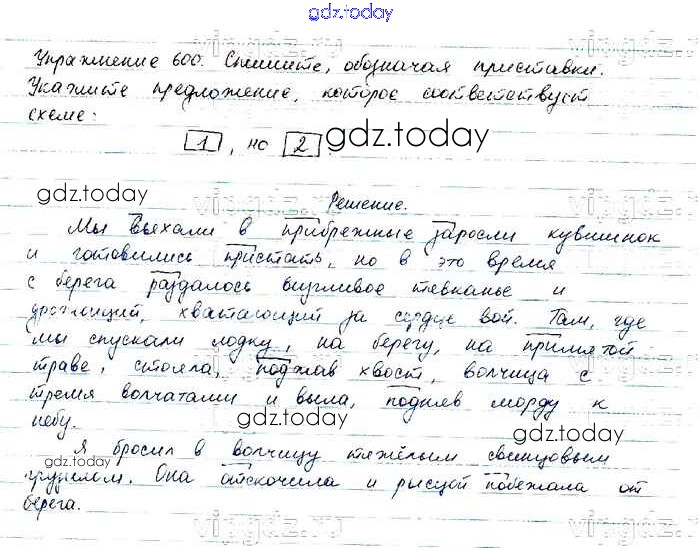 gdz.today
Упражнение 600. Спишите, обозначая приставки.
Укажите предложение, которое соответствует
схеме:
1, но 2. gdz.today
gdz.today
Решение.
Мы въехали в прибрежные заросли кувшинок
и готовились пристать, но в это время
с берега раздалось визгливое тявканье и
дрожащий, хватающий за сердце вой. Там, где
мы спускали лодку, на берегу, на примятой
траве, стояла, поджав хвост, волчица с
тремя волчатами и выла, подняв морду к
небу. gdz.today
Я бросил в волчицу тяжёлым свинцовым
gdz.today
грузилом. Она отскочила и рысцой побежала от
берега. gdz.today